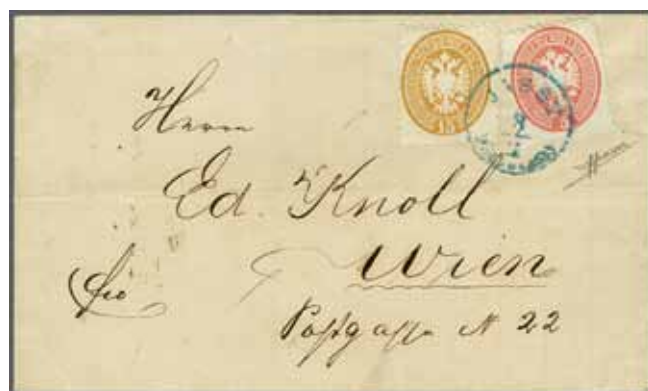 Herrn
Ed. Knoll
Wien
fro
Postgasse N 22